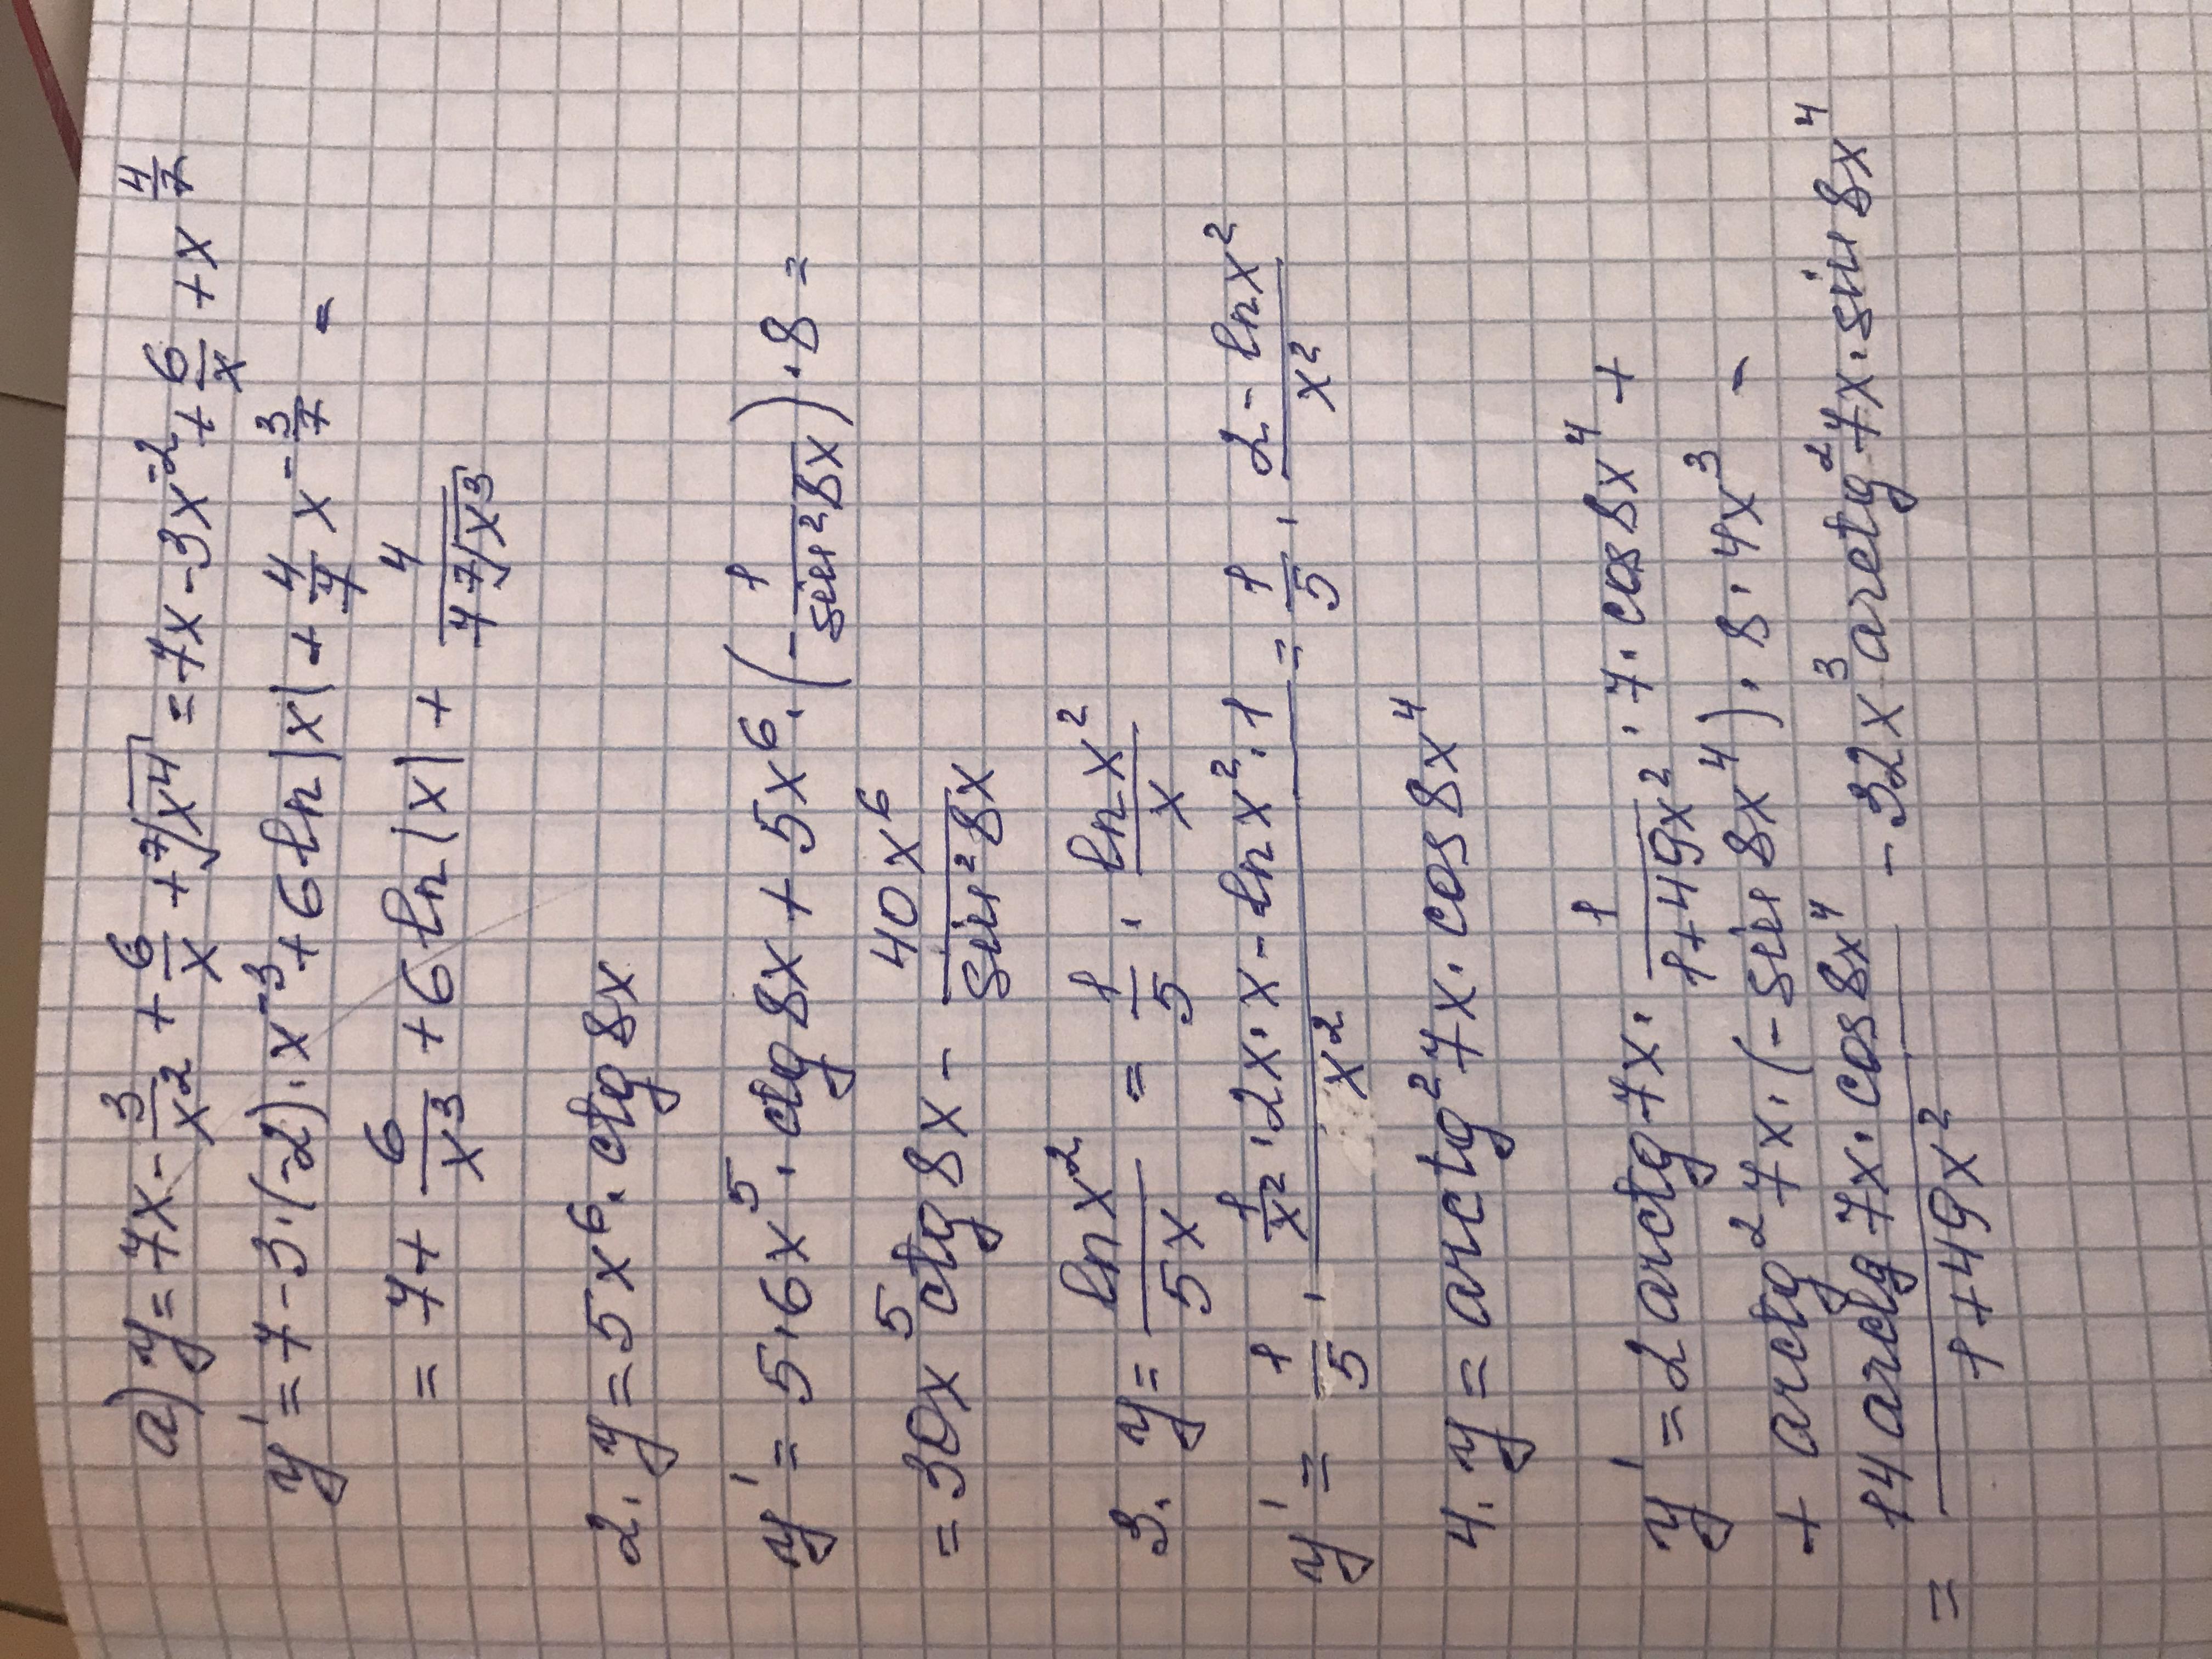 a) y = 7x - 3/x² + 6/x + ⁷√x⁴ = 7x - 3x⁻² + 6/x + x^(4/7)
y' = 7 - 3·(-2)·x⁻³ + 6 ln|x| + 4/7 x^(-3/7) =
= 7 + 6/x³ + 6 ln|x| + 4/(7 ⁷√x³)
2. y = 5x⁶ · ctg 8x
y' = 5·6x⁵ · ctg 8x + 5x⁶ · (-1/sin²8x) · 8 =
= 30x⁵ ctg 8x - 40x⁶/sin²8x
3. y = ln x²/5x = 1/5 · ln x²/x
y' = 1/5 · (1/x² · 2x · x - ln x² · 1)/x² = 1/5 · (2 - ln x²)/x²
4. y = arctg² 7x · cos 8x⁴
y' = 2 arctg 7x · 1/(1+49x²) · 7 · cos 8x⁴ +
+ arctg² 7x · (-sin 8x⁴) · 8 · 4x³ =
= (14 arctg 7x · cos 8x⁴)/(1+49x²) - 32x³ arctg² 7x · sin 8x⁴